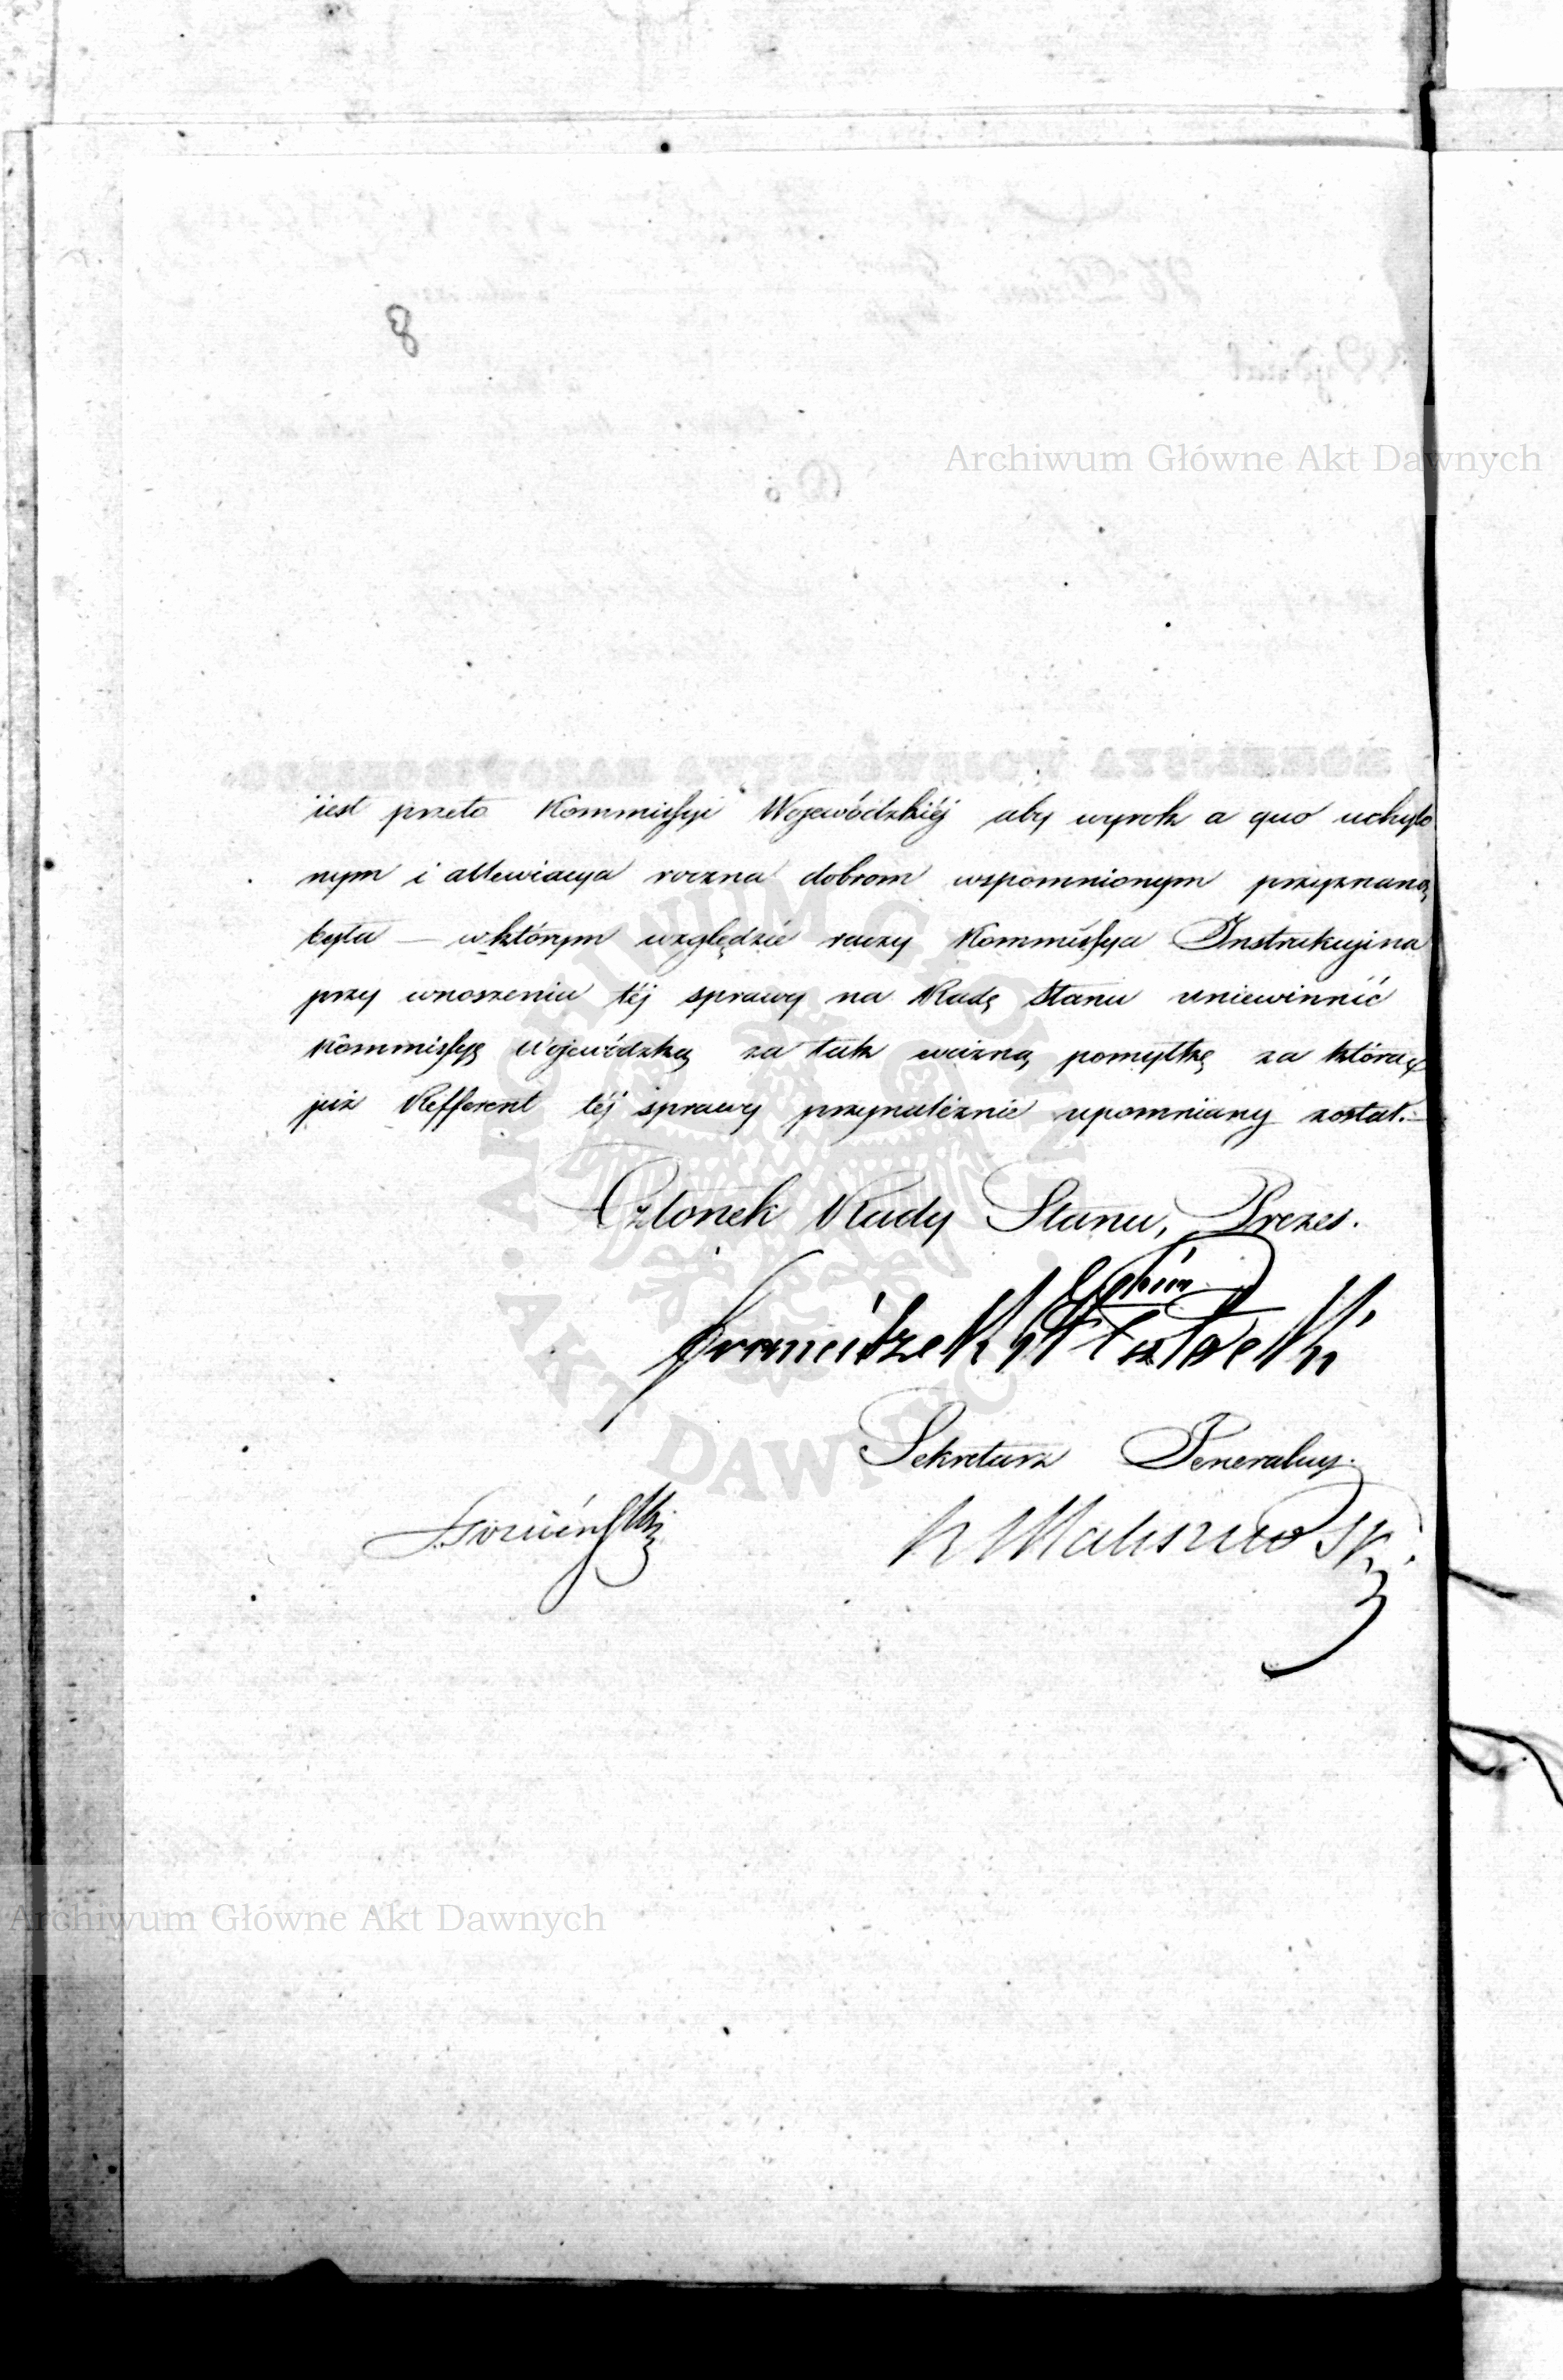 8
Archiwum Główne Akt Dawnych
iest przeto Kommissyi Wojewódzkiéj aby wyrok a quo uchylo
nym i allewiacya roczna dobrom wspomnionym przyznaną
była — w którym względzie raczy Kommissya Instrukcyina
przy wnoszeniu téj sprawy na Radę Stanu uniewinnić
Kommissyę Wojewódzką za tak ważną pomyłkę za którą
już Refferent téj sprawy przynależnie upomniany został.
Członek Rady Stanu, Prezes.
Franciszek
Sekretarz Generalny.
Malinowski
Archiwum Główne Akt Dawnych
ARCHIWUM GŁÓWNE AKT DAWNYCH